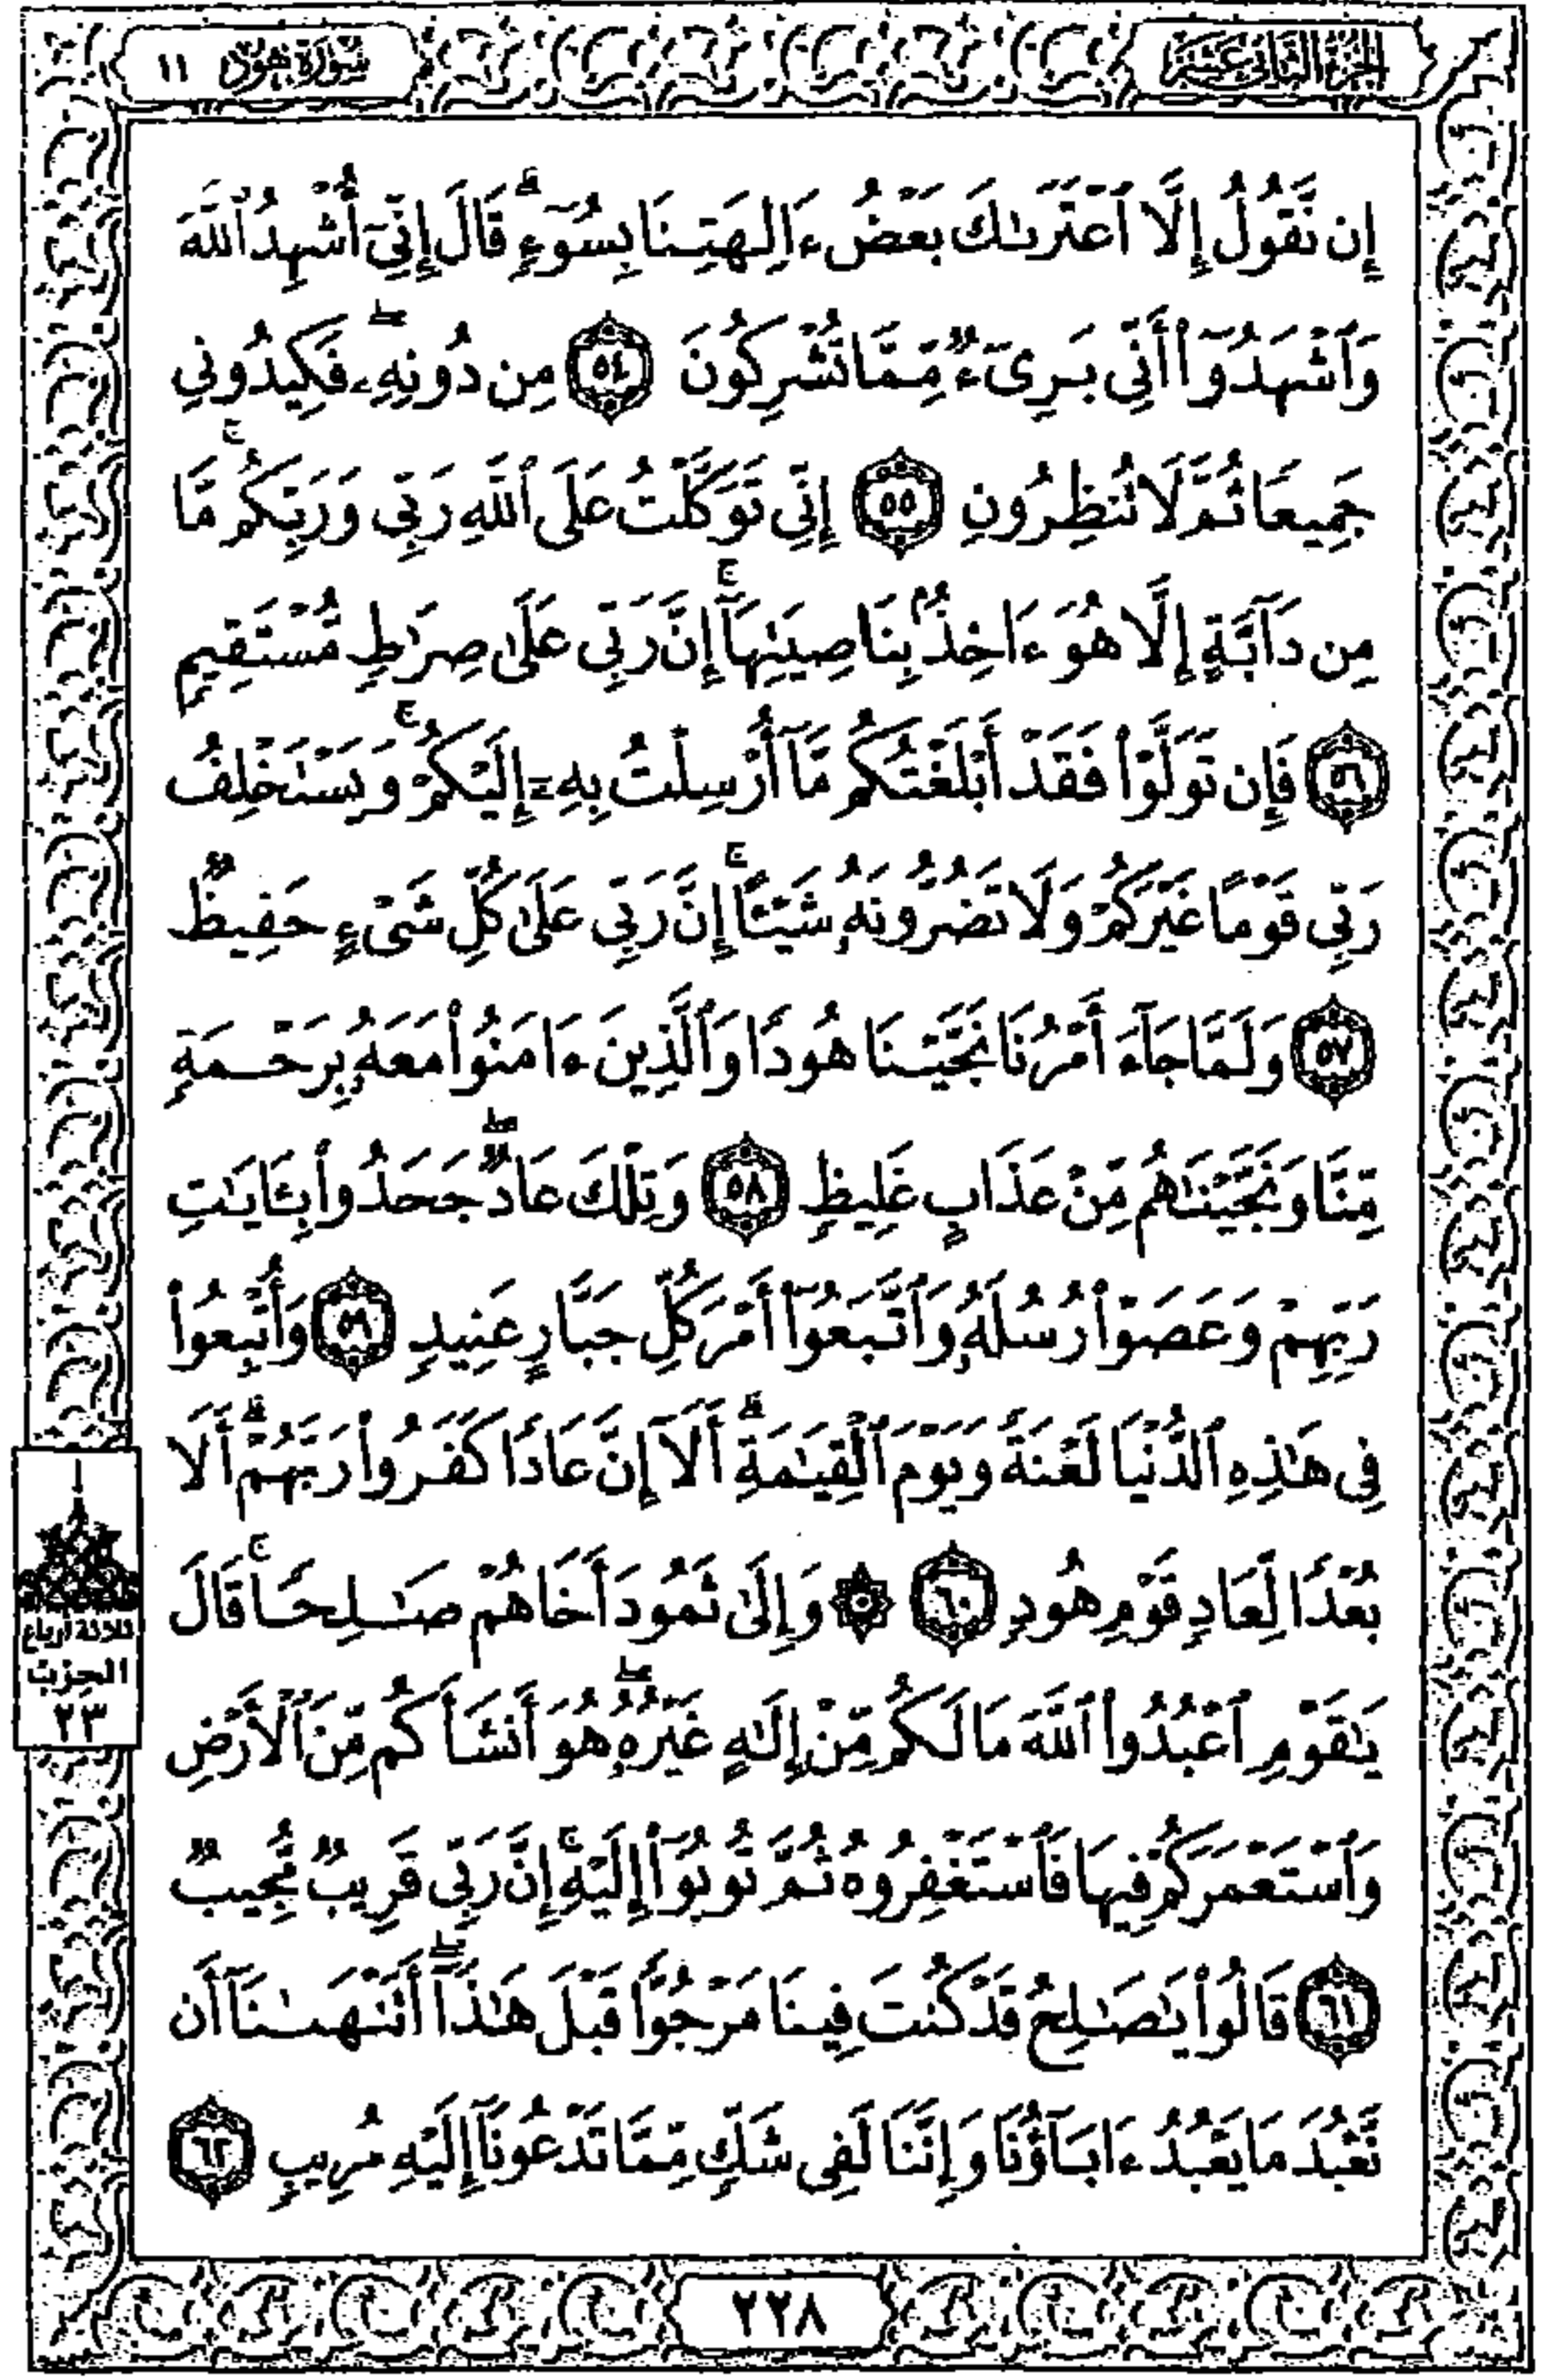 الجزء الثاني عشر
سورة هود ١١
إِن نَّقُولُ إِلَّا ٱعْتَرَىٰكَ بَعْضُ ءَالِهَتِنَا بِسُوٓءٍ ۗ قَالَ إِنِّىٓ أُشْهِدُ ٱللَّهَ
وَٱشْهَدُوٓا۟ أَنِّى بَرِىٓءٌ مِّمَّا تُشْرِكُونَ ﴿٥٤﴾ مِن دُونِهِۦ ۖ فَكِيدُونِى
جَمِيعًا ثُمَّ لَا تُنظِرُونِ ﴿٥٥﴾ إِنِّى تَوَكَّلْتُ عَلَى ٱللَّهِ رَبِّى وَرَبِّكُم ۚ مَّا
مِن دَآبَّةٍ إِلَّا هُوَ ءَاخِذٌۢ بِنَاصِيَتِهَآ ۚ إِنَّ رَبِّى عَلَىٰ صِرَٰطٍ مُّسْتَقِيمٍ
﴿٥٦﴾ فَإِن تَوَلَّوْا۟ فَقَدْ أَبْلَغْتُكُم مَّآ أُرْسِلْتُ بِهِۦٓ إِلَيْكُمْ ۚ وَيَسْتَخْلِفُ
رَبِّى قَوْمًا غَيْرَكُمْ وَلَا تَضُرُّونَهُۥ شَيْـًٔا ۚ إِنَّ رَبِّى عَلَىٰ كُلِّ شَىْءٍ حَفِيظٌ
﴿٥٧﴾ وَلَمَّا جَآءَ أَمْرُنَا نَجَّيْنَا هُودًا وَٱلَّذِينَ ءَامَنُوا۟ مَعَهُۥ بِرَحْمَةٍ
مِّنَّا وَنَجَّيْنَٰهُم مِّنْ عَذَابٍ غَلِيظٍ ﴿٥٨﴾ وَتِلْكَ عَادٌ ۖ جَحَدُوا۟ بِـَٔايَٰتِ
رَبِّهِمْ وَعَصَوْا۟ رُسُلَهُۥ وَٱتَّبَعُوٓا۟ أَمْرَ كُلِّ جَبَّارٍ عَنِيدٍ ﴿٥٩﴾ وَأُتْبِعُوا۟
فِى هَٰذِهِ ٱلدُّنْيَا لَعْنَةً وَيَوْمَ ٱلْقِيَٰمَةِ ۗ أَلَآ إِنَّ عَادًا كَفَرُوا۟ رَبَّهُمْ ۗ أَلَا
بُعْدًا لِّعَادٍ قَوْمِ هُودٍ ﴿٦٠﴾ ۞ وَإِلَىٰ ثَمُودَ أَخَاهُمْ صَٰلِحًا ۚ قَالَ
يَٰقَوْمِ ٱعْبُدُوا۟ ٱللَّهَ مَا لَكُم مِّنْ إِلَٰهٍ غَيْرُهُۥ ۖ هُوَ أَنشَأَكُم مِّنَ ٱلْأَرْضِ
وَٱسْتَعْمَرَكُمْ فِيهَا فَٱسْتَغْفِرُوهُ ثُمَّ تُوبُوٓا۟ إِلَيْهِ ۚ إِنَّ رَبِّى قَرِيبٌ مُّجِيبٌ
﴿٦١﴾ قَالُوا۟ يَٰصَٰلِحُ قَدْ كُنتَ فِينَا مَرْجُوًّا قَبْلَ هَٰذَآ ۖ أَتَنْهَىٰنَآ أَن
نَّعْبُدَ مَا يَعْبُدُ ءَابَآؤُنَا وَإِنَّنَا لَفِى شَكٍّ مِّمَّا تَدْعُونَآ إِلَيْهِ مُرِيبٍ ﴿٦٢﴾
ثلاثة أرباع
الحزب
٢٣
٢٢٨